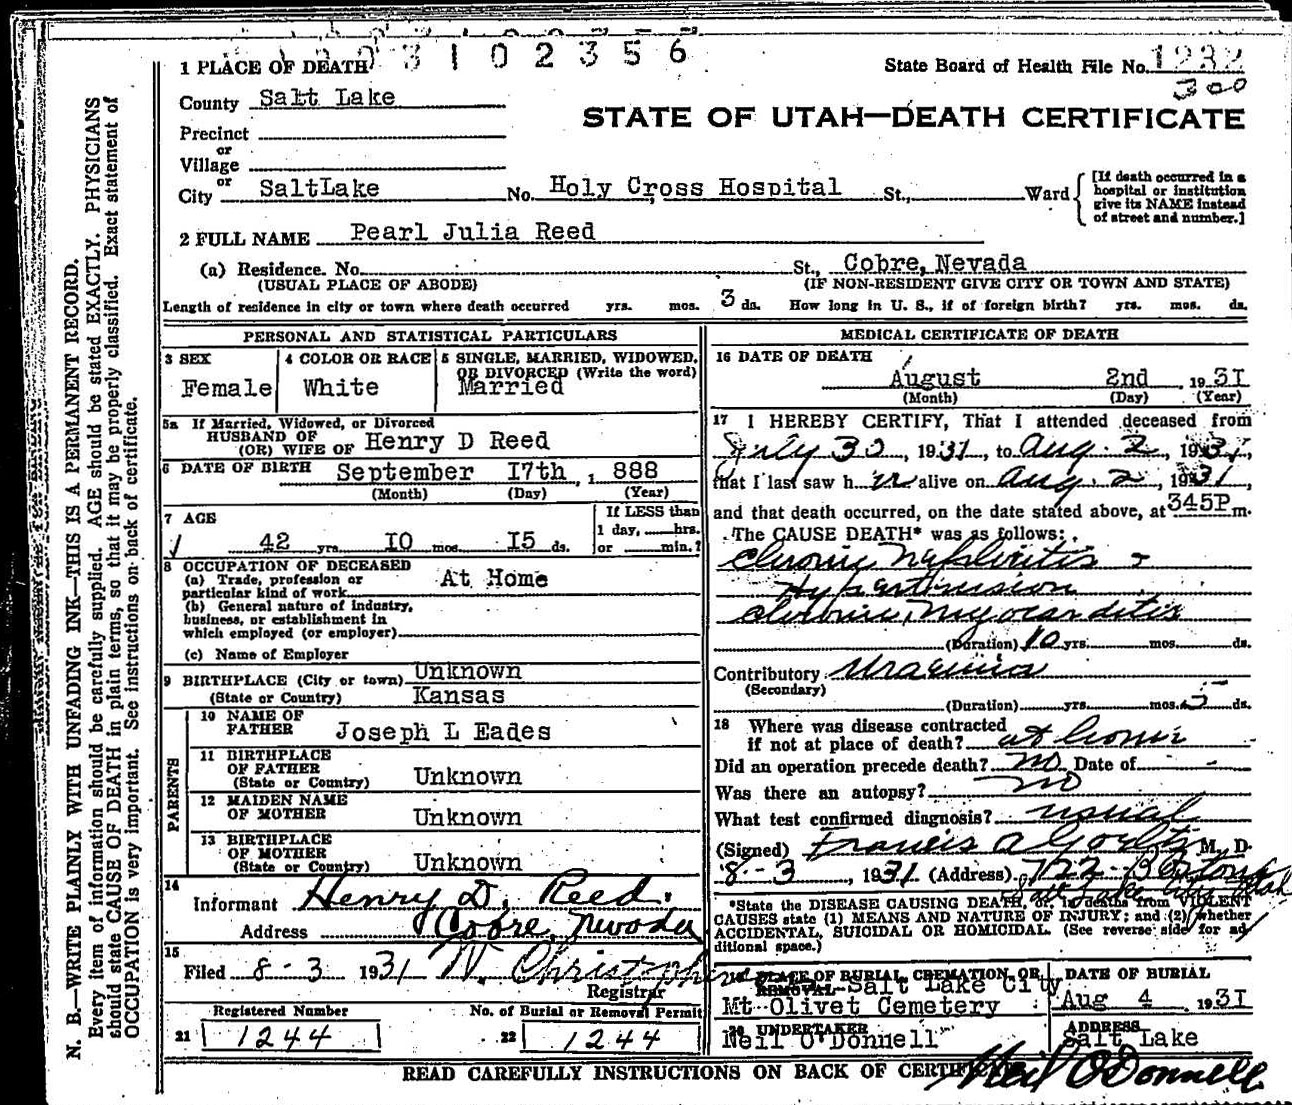 3 1 0 2 3 5 6
1 PLACE OF DEATH
State Board of Health File No. 1232
300
County Salt Lake
STATE OF UTAH—DEATH CERTIFICATE
Precinct
or
Village
or
City SaltLake No. Holy Cross Hospital St., Ward
[If death occurred in a hospital or institution give its NAME instead of street and number.]
2 FULL NAME Pearl Julia Reed
(a) Residence. No. St., Cobre, Nevada
(USUAL PLACE OF ABODE) (IF NON-RESIDENT GIVE CITY OR TOWN AND STATE)
Length of residence in city or town where death occurred yrs. mos. 3 ds. How long in U. S., if of foreign birth? yrs. mos. ds.
PERSONAL AND STATISTICAL PARTICULARS
3 SEX
Female
4 COLOR OR RACE
White
5 SINGLE, MARRIED, WIDOWED,
OR DIVORCED (Write the word)
Married
5a If Married, Widowed, or Divorced
HUSBAND OF
(OR) WIFE OF Henry D Reed
6 DATE OF BIRTH September I7th, 1888
(Month) (Day) (Year)
7 AGE
42 yrs. IO mos. I5 ds.
If LESS than
1 day, hrs.
or min.?
8 OCCUPATION OF DECEASED
(a) Trade, profession or
particular kind of work At Home
(b) General nature of industry,
business, or establishment in
which employed (or employer)
(c) Name of Employer
9 BIRTHPLACE (City or town) Unknown
(State or Country) Kansas
PARENTS
10 NAME OF
FATHER Joseph L Eades
11 BIRTHPLACE
OF FATHER
(State or Country) Unknown
12 MAIDEN NAME
OF MOTHER Unknown
13 BIRTHPLACE
OF MOTHER
(State or Country) Unknown
14
Informant Henry D. Reed.
Address Cobre, Nevada
15
Filed 8-3 1931
Registrar
Registered Number
21 1244
No. of Burial or Removal Permit
22 1244
MEDICAL CERTIFICATE OF DEATH
16 DATE OF DEATH
August 2nd, 1931
(Month) (Day) (Year)
17 I HEREBY CERTIFY, That I attended deceased from
July 30, 1931, to Aug. 2, 1931,
that I last saw her alive on Aug. 2, 1931,
and that death occurred, on the date stated above, at 345P m.
The CAUSE DEATH* was as follows:
Chronic Nephritis &
Hypertension
Chronic Myocarditis
(Duration) 10 yrs. mos. ds.
Contributory Uraemia
(Secondary)
(Duration) yrs. mos. 5 ds.
18 Where was disease contracted
if not at place of death? at home
Did an operation precede death? no Date of -
Was there an autopsy? no
What test confirmed diagnosis? usual
(Signed) Francis A M. D.
8-3, 1931 (Address)
Salt Lake City Utah
*State the DISEASE CAUSING DEATH, or, in deaths from VIOLENT
CAUSES state (1) MEANS AND NATURE OF INJURY; and (2) whether
ACCIDENTAL, SUICIDAL OR HOMICIDAL. (See reverse side for ad-
ditional space.)
19 PLACE OF BURIAL, CREMATION, OR
REMOVAL Salt Lake City
Mt Olivet Cemetery
DATE OF BURIAL
Aug 4, 1931
20 UNDERTAKER
Neil O'Donnell
ADDRESS
Salt Lake
Neil O'Donnell
READ CAREFULLY INSTRUCTIONS ON BACK OF CERTIFICATE
N. B.—WRITE PLAINLY WITH UNFADING INK—THIS IS A PERMANENT RECORD.
Every item of information should be carefully supplied. AGE should be stated EXACTLY. PHYSICIANS
should state CAUSE OF DEATH in plain terms, so that it may be properly classified. Exact statement of
OCCUPATION is very important. See instructions on back of certificate.